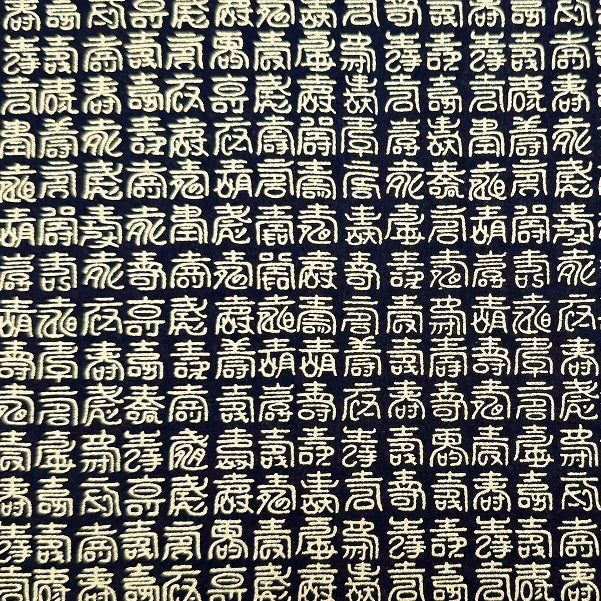 壽壽壽壽壽壽壽壽壽壽壽壽壽壽
壽壽壽壽壽壽壽壽壽壽壽壽壽壽
壽壽壽壽壽壽壽壽壽壽壽壽壽壽
壽壽壽壽壽壽壽壽壽壽壽壽壽壽
壽壽壽壽壽壽壽壽壽壽壽壽壽壽
壽壽壽壽壽壽壽壽壽壽壽壽壽壽
壽壽壽壽壽壽壽壽壽壽壽壽壽壽
壽壽壽壽壽壽壽壽壽壽壽壽壽壽
壽壽壽壽壽壽壽壽壽壽壽壽壽壽
壽壽壽壽壽壽壽壽壽壽壽壽壽壽
壽壽壽壽壽壽壽壽壽壽壽壽壽壽
壽壽壽壽壽壽壽壽壽壽壽壽壽壽
壽壽壽壽壽壽壽壽壽壽壽壽壽壽
壽壽壽壽壽壽壽壽壽壽壽壽壽壽